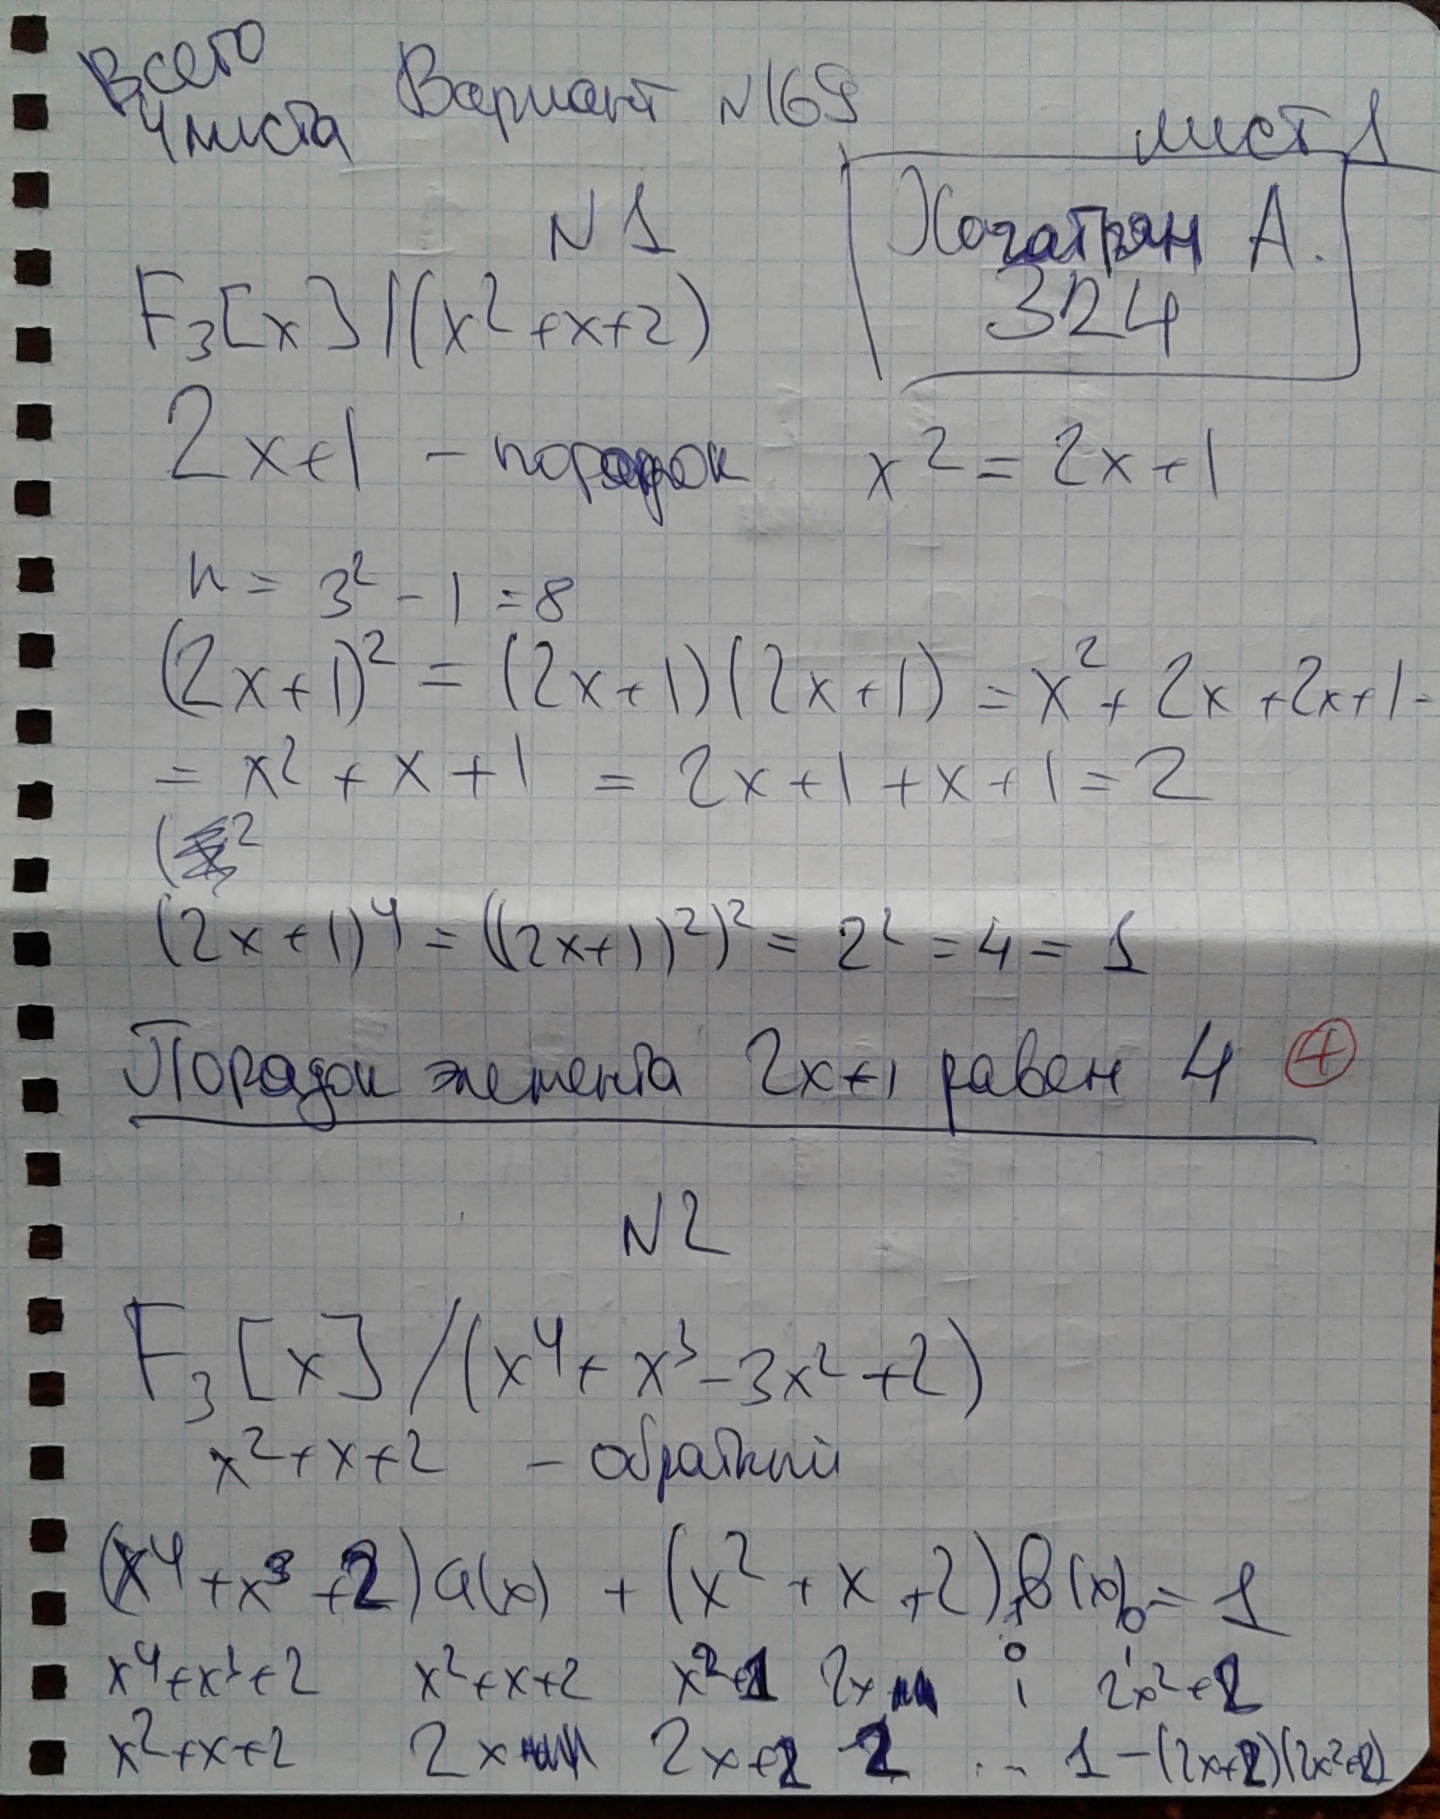 Всего
4 листа
Вариант №169
лист 1
Хачатрян А.
324
N1
F₃[x]/(x²+x+2)
2x+1 – порядок x² = 2x+1
n = 3² - 1 = 8
(2x+1)² = (2x+1)(2x+1) = x² + 2x + 2x+1 =
= x² + x + 1 = 2x+1+x+1 = 2
(2x+1)⁴ = ((2x+1)²)² = 2² = 4 = 1
Порядок элемента 2x+1 равен 4 +
N2
F₃[x]/(x⁴+x³-3x²+2)
x²+x+2 – обратный
(x⁴+x³+2)a(x) + (x²+x+2)b(x) = 1
1 0
x⁴+x³+2 x²+x+2 x²+1 2x 0 1
1 2x²+2
x²+x+2 2x 2x+2 2 ... 1-(2x+2)(2x²+2)